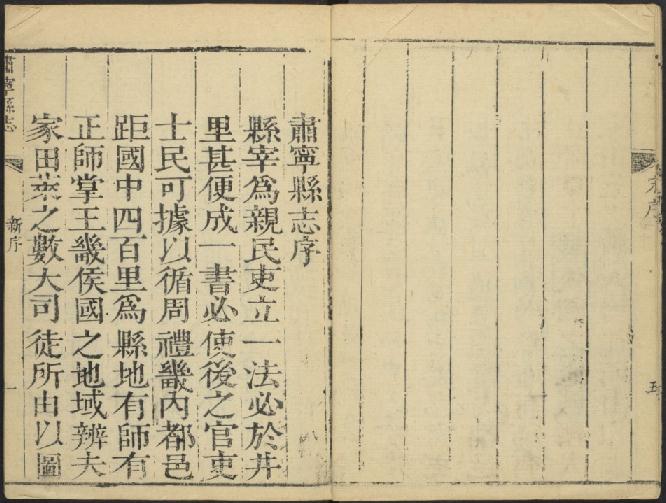 肅寧縣志序
縣宰爲親民吏立一法必於井
里甚便成一書必使後之官吏
士民可據以循周禮畿內都邑
距國中四百里爲縣地有師有
正師掌王畿侯國之地域辨夫
家田萊之數大司徒所由以圖
肅寧縣志
新序
一